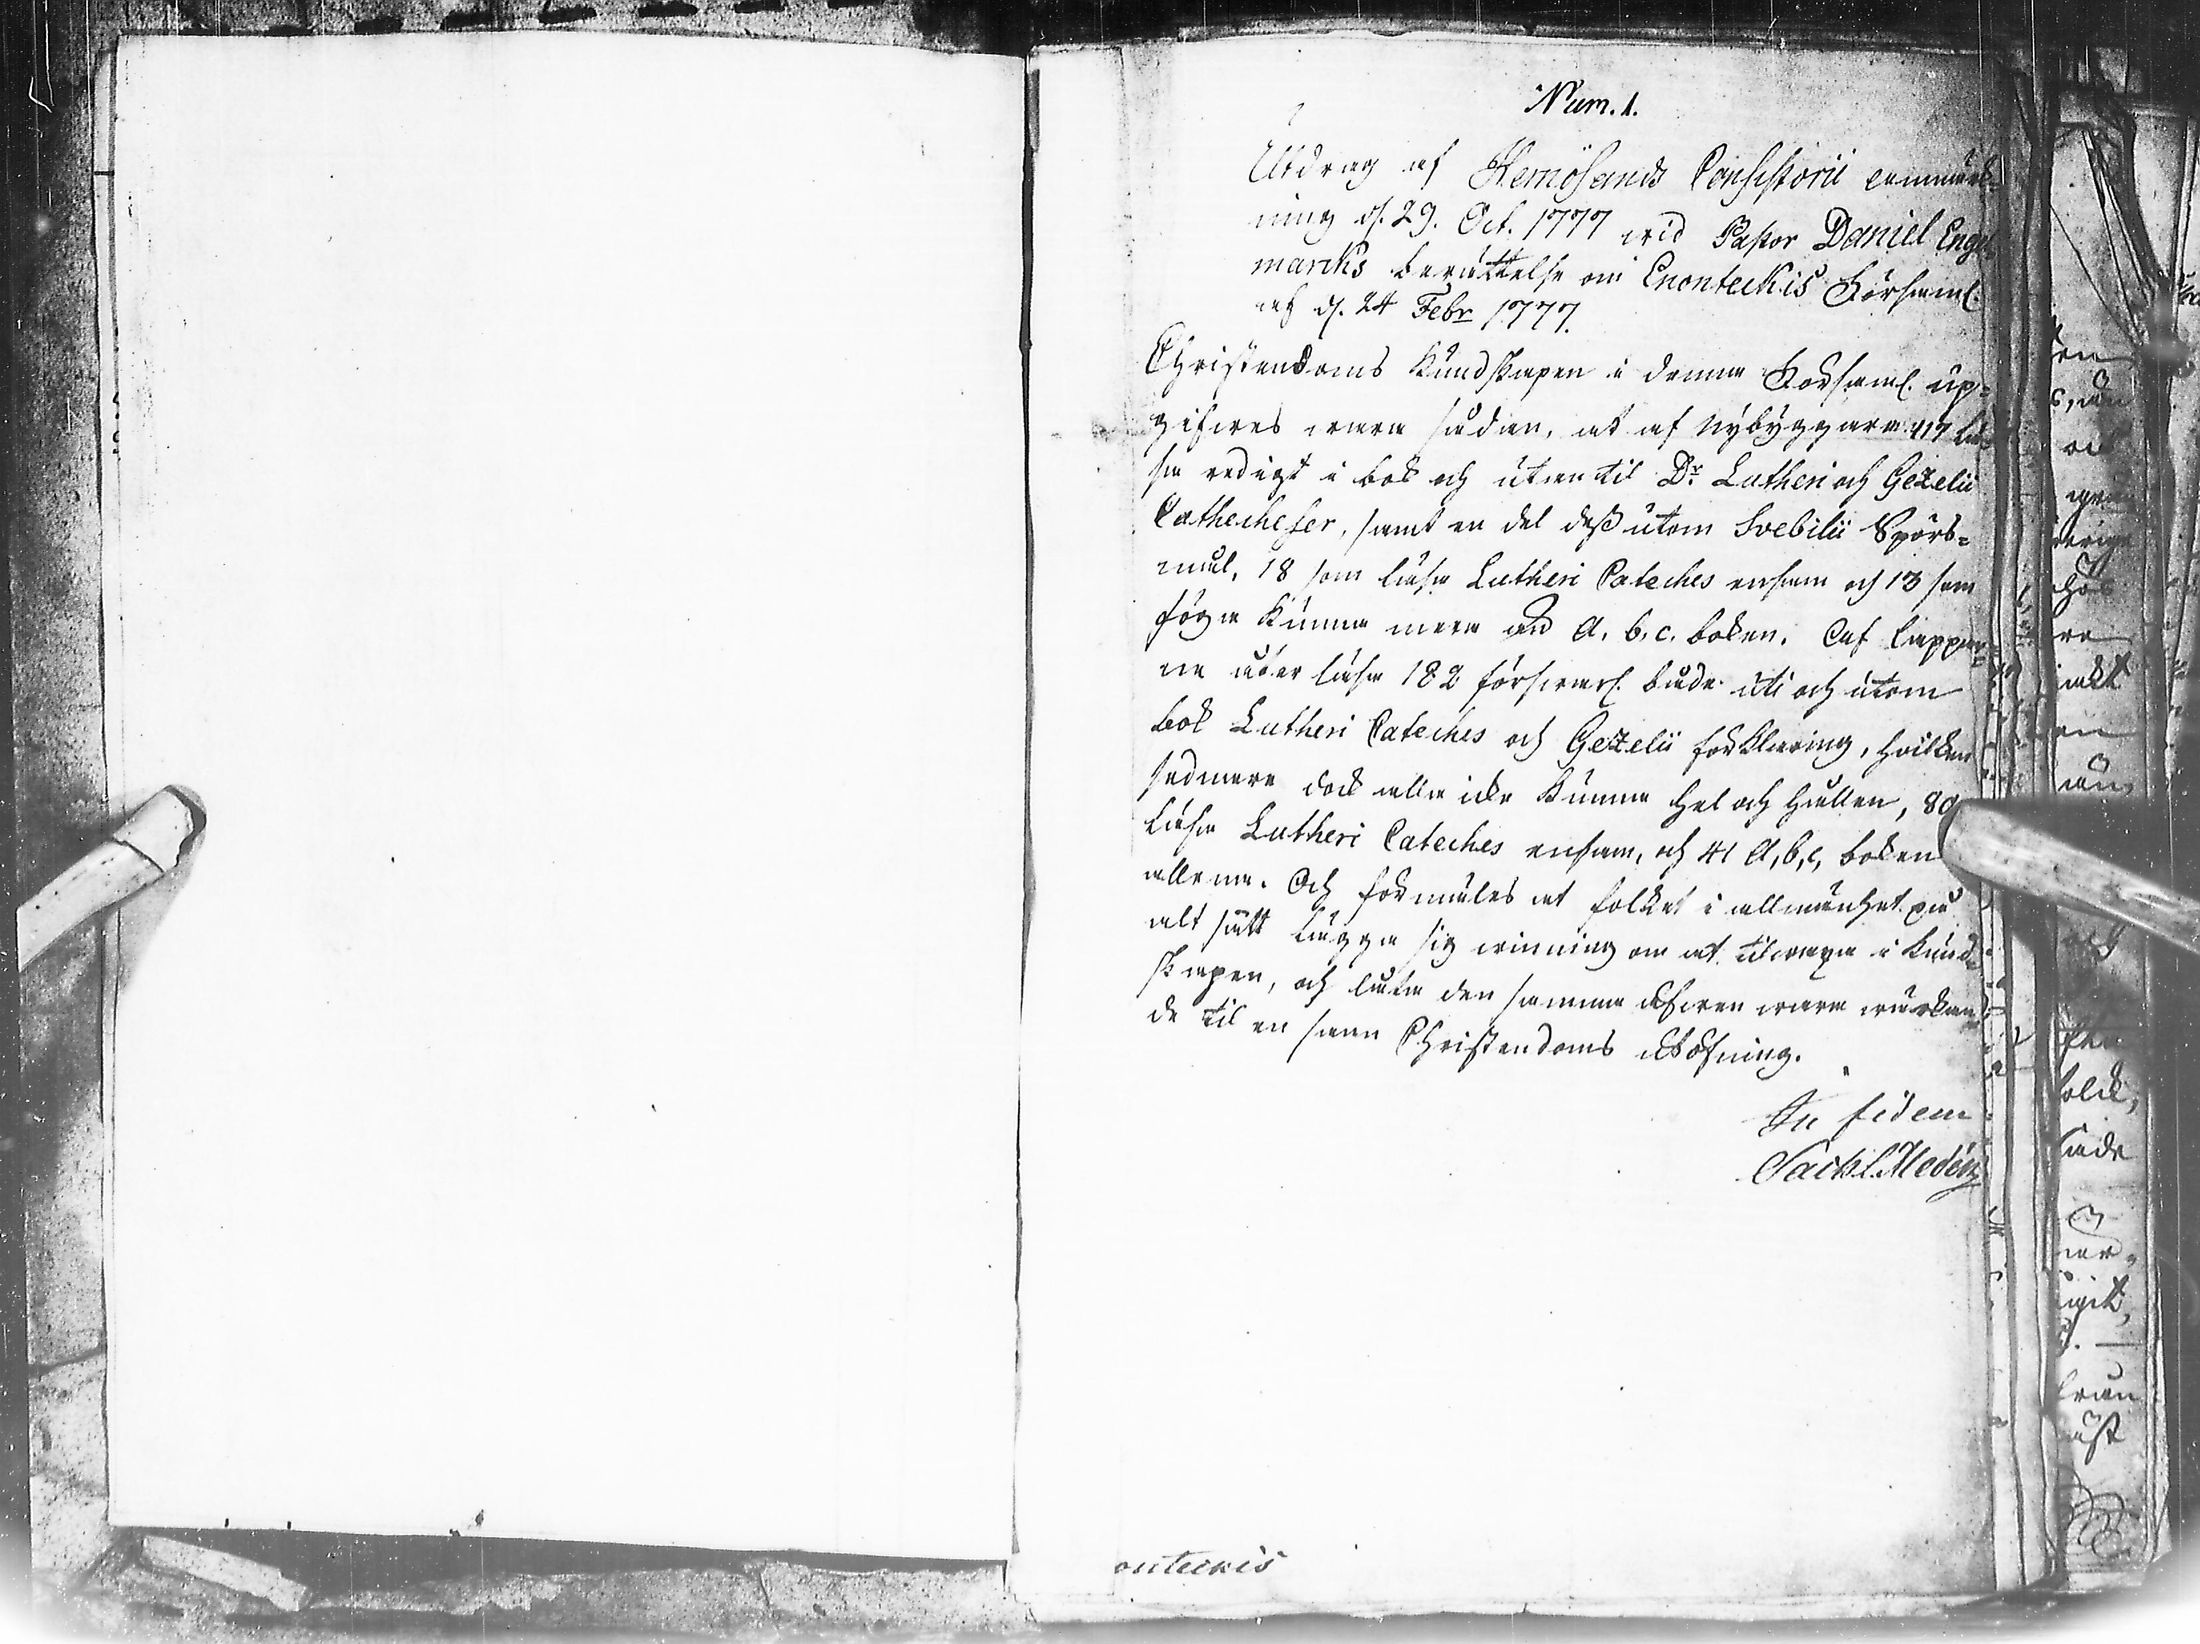 Num. 1.
Utdrag af Hernösands Consistorii anmärk-
ning d. 29. Oct. 1777 wid Pastor Daniel Engel
marcks berättelse om Enonteckis Församl.
af d. 24 Febr 1777.
Christendoms Kundskapen i denna Församl. up-
gifwes wara sådan, at af Nybyggare 117 lä-
sa redigt i bok och utan til Dr. Lutheri och Gezelii
Catecheser, samt en del dess utom Svebilii Spörs-
mål, 18 som läsa Lutheri Cateches ensam och 13 som
föga kunna mera än A. b. c. boken. Af Lappar-
na åter läsa 182 förswarl. både uti och utom
bok Lutheri Cateches och Gezelii förklaring, hvilken
sednare dock alla icke kunna hel och hållen, 80
läsa Lutheri Cateches ensam, och 41 A, b, c, boken
allena. Och förmäles at folket i allmänhet på
alt sätt lägga sig winning om at tilwäxa i Kund-
skapen, och låta den samma äfwen wara wärckan-
de til en sann Christendoms öfning.
In fidem
onteckis